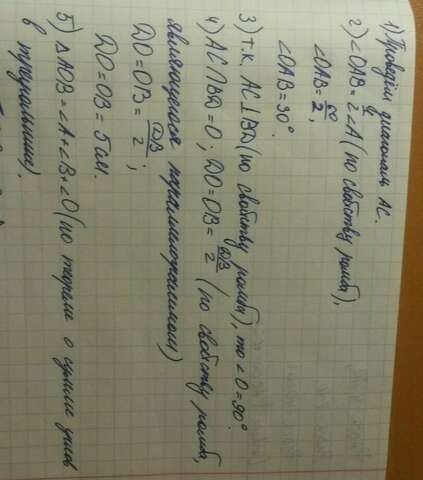 1) Проведём диагональ AC.
2) ∠OAB = ½∠A (по свойству ромба),
∠OAB = 60/2;
∠OAB = 30°.
3) т.к. AC⊥BD (по свойству ромба), то ∠O = 90°.
4) AC∩BD = O; DO = OB = DB/2 (по свойству ромба,
являющегося параллелограммом)
DO = OB = DB/2;
DO = OB = 5см.
5) △AOB = ∠A + ∠B + ∠O (по теореме о сумме углов
в треугольнике),